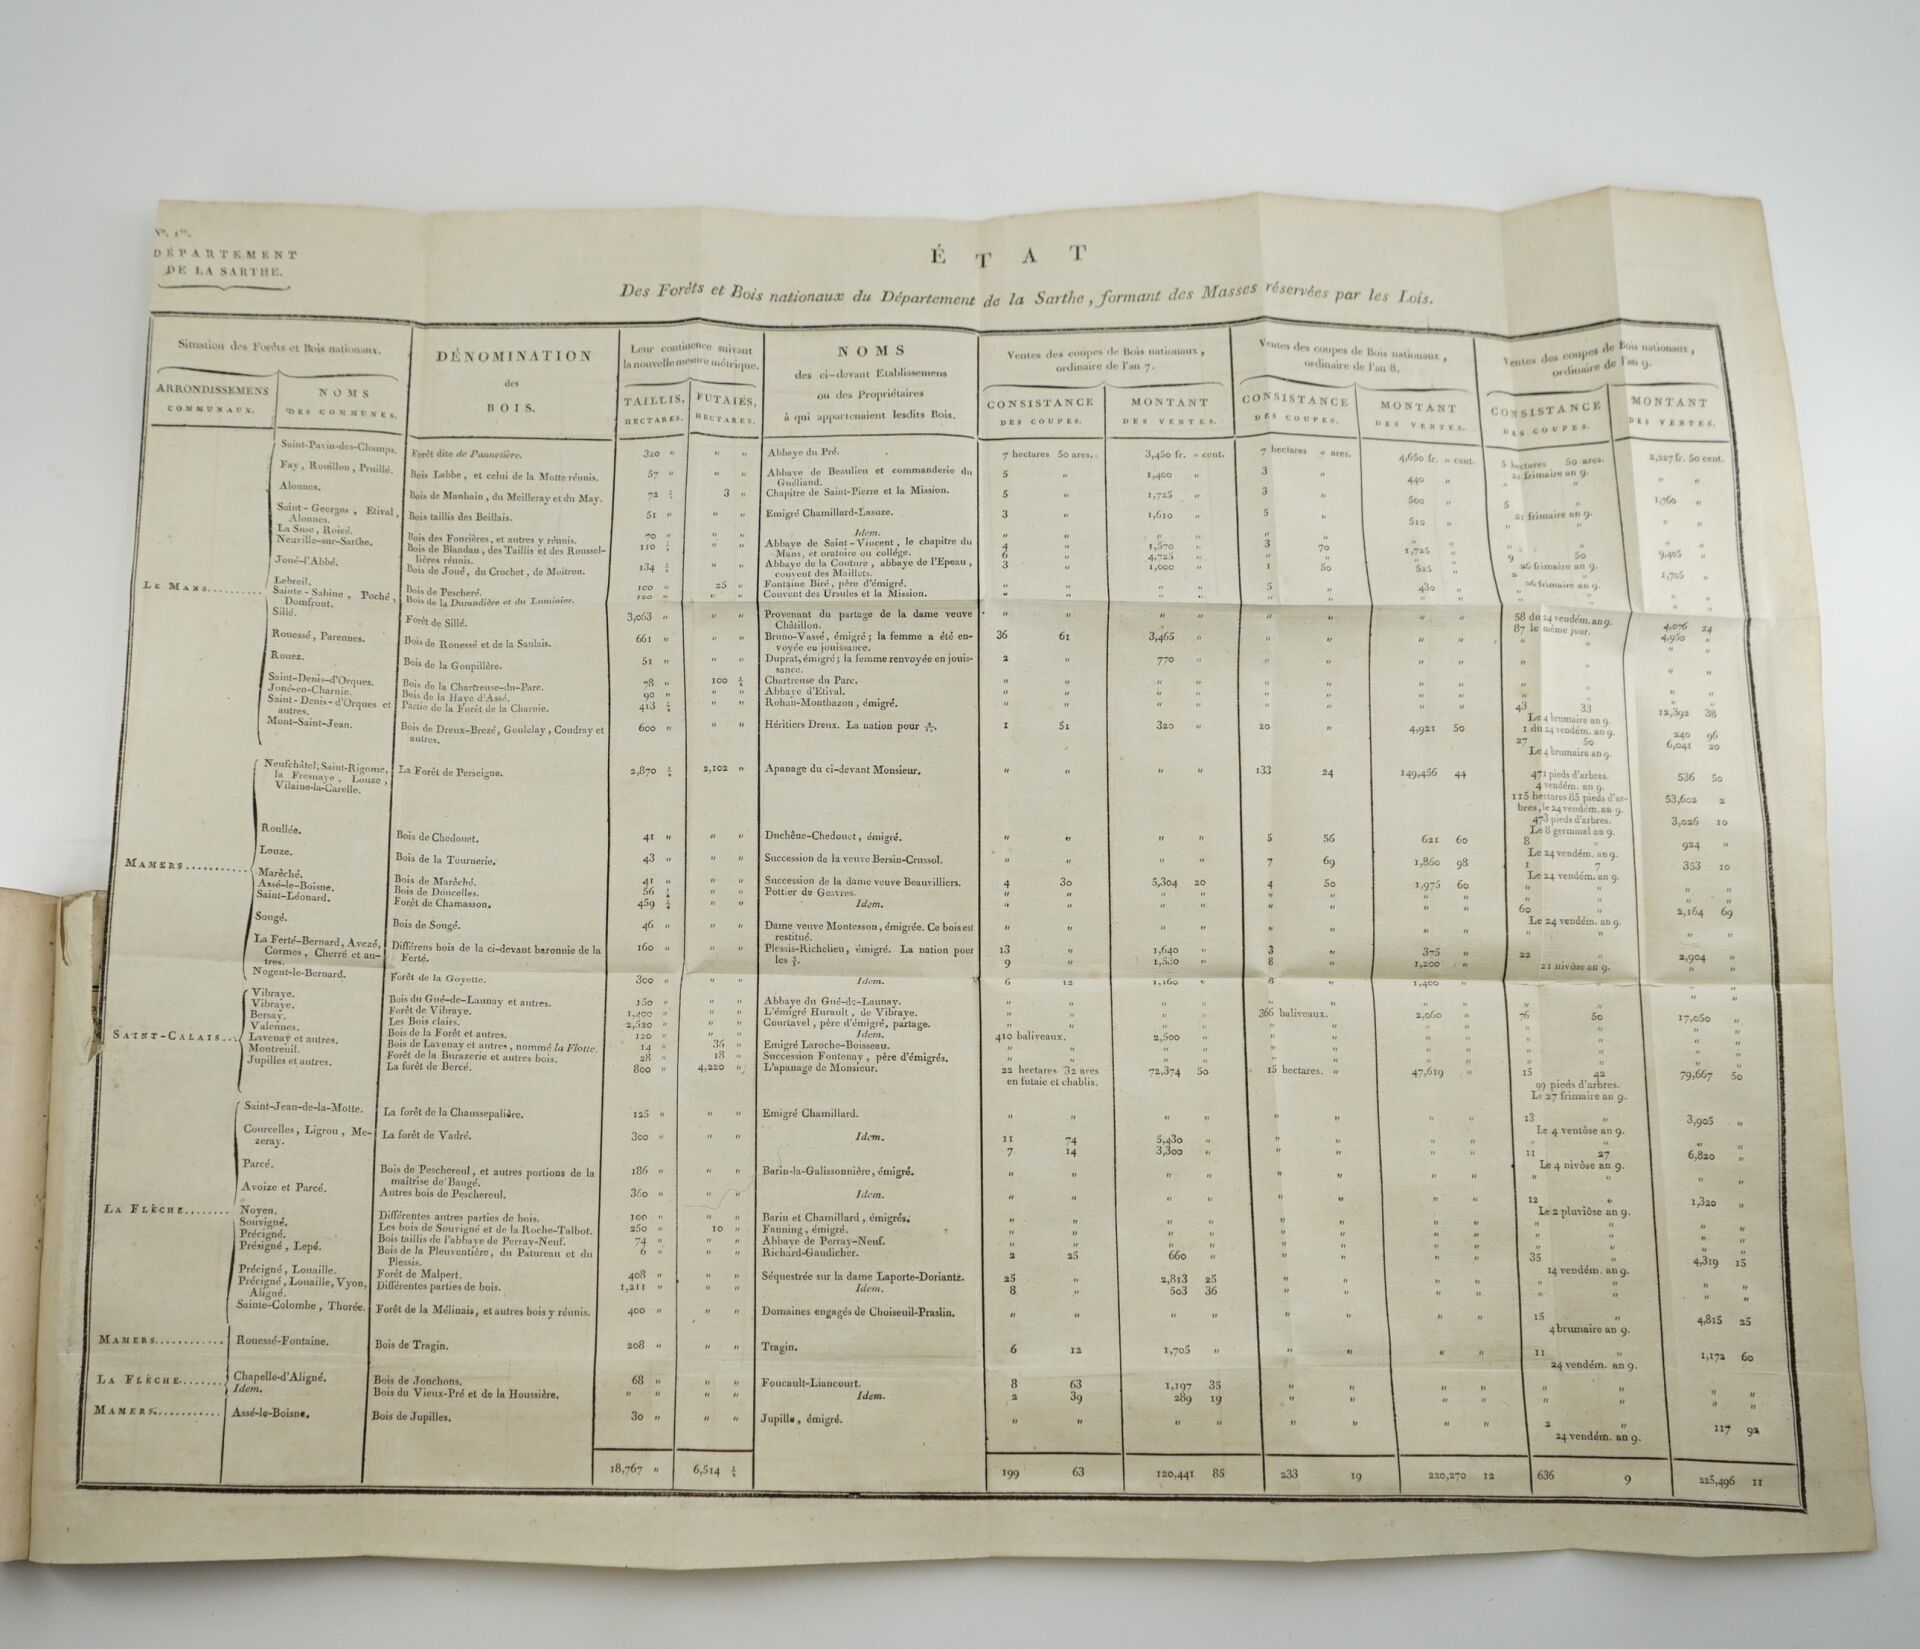 N°. 1er.
DÉPARTEMENT
DE LA SARTHE.
ÉTAT
Des Forêts et Bois nationaux du Département de la Sarthe, formant des Masses réservées par les Lois.
Situation des Forêts et Bois nationaux.
ARRONDISSEMENS COMMUNAUX.
NOMS DES COMMUNES.
DÉNOMINATION des BOIS.
Leur continence suivant la nouvelle mesure métrique.
TAILLIS, HECTARES.
FUTAIES, HECTARES.
NOMS des ci-devant Etablissemens ou des Propriétaires à qui appartenaient lesdits Bois.
Ventes des coupes de Bois nationaux, ordinaire de l'an 7.
CONSISTANCE DES COUPES.
MONTANT DES VENTES.
Ventes des coupes de Bois nationaux, ordinaire de l'an 8.
CONSISTANCE DES COUPES.
MONTANT DES VENTES.
Ventes des coupes de Bois nationaux, ordinaire de l'an 9.
CONSISTANCE DES COUPES.
MONTANT DES VENTES.
LE MANS..........
Saint-Pavin-des-Champs. Forêt dite de Pannetière. 320 " " " Abbaye du Pré. 7 hectares 50 ares. 3,450 fr. " cent. 7 hectares " ares. 4,650 fr. " cent. 5 hectares 50 ares. 2,227 fr. 50 cent.
21 frimaire an 9.
Fay, Rouillon, Pruillé. Bois Labbe, et celui de la Motte réunis. 57 " " " Abbaye de Beaulieu et commanderie du Guéliand. 5 " 1,400 " 3 " 440 " " " " "
Alonnes. Bois de Manhain, du Meilleray et du May. 72 3 " Chapitre de Saint-Pierre et la Mission. 5 " 1,725 " 3 " 500 " 5 " 1,760 "
21 frimaire an 9.
Saint-Georges, Etival, Alonnes. Bois taillis des Beillais. 51 " " " Emigré Chamillard-Lasuze. 3 " 1,610 " 5 " 510 " " " " "
La Suse, Roizé. Bois des Fourières, et autres y réunis. 70 " " " Idem. " " " " " " " "
Neuville-sur-Sarthe. Bois de Blandan, des Taillis et des Roussellières réunis. 110 " " Abbaye de Saint-Vincent, le chapitre du Mans, et oratoire ou collége. 4 " 1,570 " 3 70 1,725 " 9 50 9,405 "
6 " 4,725 "
26 frimaire an 9.
Joué-l'Abbé. Bois de Joué, du Crochet, de Moitron. 134 " " Abbaye de la Couture, abbaye de l'Epeau, couvent des Maillets. 3 " 1,000 " 1 50 525 " 2 " 1,705 "
26 frimaire an 9.
Lebreil. Bois de Pescheré. 100 25 " Fontaine Biré, père d'émigré. " " " " 5 " 430 " " " " "
Sainte-Sabine, Poché, Domfront. Bois de la Durandière et du Luminier. 120 " " " Couvent des Ursules et la Mission. " " " " " " " "
Sillé. Forêt de Sillé. 3,063 " " " Provenant du partage de la dame veuve Châtillon. " " " " " " " " 58 du 24 vendém. an 9. 4,076 24
87 le même jour. 4,950 "
Rouessé, Parennes. Bois de Rouessé et de la Saulais. 661 " " " Bruno-Vassé, émigré; la femme a été envoyée en jouissance. 36 61 3,465 " " " " "
Rouez. Bois de la Goupillère. 51 " " " Duprat, émigré; la femme renvoyée en jouissance. 2 " 770 " " " " "
Saint-Denis-d'Orques. Bois de la Chartreuse-du-Parc. 78 " 100 ½ Chartreuse du Parc. " " " " " " " "
Joué-en-Charnie. Bois de la Haye d'Assé. 90 " " " Abbaye d'Etival. " " " " " " " "
Saint-Denis-d'Orques et autres. Partie de la Forêt de la Charnie. 413 " " Rohan-Montbazon, émigré. " " " " " " " " 43 33 12,392 38
Le 4 brumaire an 9.
Mont-Saint-Jean. Bois de Dreux-Brezé, Goulelay, Coudray et autres. 600 " " " Héritiers Dreux. La nation pour 1 51 320 " 20 " 4,921 50 1 du 24 vendém. an 9. 240 96
27 50 6,041 20
Le 4 brumaire an 9.
MAMERS..........
Neufchâtel, Saint-Rigome, la Fresnaye, Louze, Vilaine-la-Carelle. La Forêt de Perseigne. 2,870 2,102 " Apanage du ci-devant Monsieur. " " " " 133 24 149,456 44 471 pieds d'arbres. 536 50
4 vendém. an 9.
115 hectares 85 pieds d'arbres, le 24 vendém. an 9. 53,602 2
473 pieds d'arbres. 3,026 10
Le 8 germinal an 9.
Roullée. Bois de Chedouet. 41 " " " Duchêne-Chedouet, émigré. " " " " 5 56 621 60 8 " 924 "
Le 24 vendém. an 9.
Louze. Bois de la Tournerie. 43 " " " Succession de la veuve Bersin-Crussol. " " " " 7 69 1,860 98 1 7 353 10
Le 24 vendém. an 9.
Marêché. Bois de Marêché. 41 " " " Succession de la dame veuve Beauvilliers. 4 30 5,304 20 4 50 1,975 60 " " " "
Assé-le-Boisne. Bois de Doucelles. 56 " " Pottier de Gesvres. " " " " " " " " " " " "
Saint-Léonard. Forêt de Chamasson. 459 " " Idem. " " " " " " " " 60 " 2,164 69
Le 24 vendém. an 9.
Sougé. Bois de Sougé. 46 " " " Dame veuve Montesson, émigrée. Ce bois est restitué. " " " " " " " " " " " "
La Ferté-Bernard, Avezé, Cormes, Cherré et autres. Différens bois de la ci-devant baronnie de la Ferté. 160 " " " Plessis-Richelieu, émigré. La nation pour les 13 " 1,640 " 3 " 375 " 22 " 2,904 "
9 " 1,530 " 8 " 1,200 "
21 nivôse an 9.
Nogent-le-Bernard. Forêt de la Goyette. 300 " " " Idem. 6 12 1,160 " 8 " 1,400 " " " " "
SAINT-CALAIS...
Vibraye. Bois du Gué-de-Launay et autres. 150 " " " Abbaye du Gué-de-Launay. " " " " " " " "
Vibraye. Forêt de Vibraye. 1,400 " " " L'émigré Hurault, de Vibraye. " " " " 366 baliveaux. 2,060 " 76 50 17,050 "
Bersay. Les Bois clairs. 2,520 " " " Courtavel, père d'émigré, partage. " " " " " " " "
Valennes. Bois de la Forêt et autres. 120 " " " Idem. 410 baliveaux. 2,500 " " " " "
Lavenay et autres. Bois de Lavenay et autres, nommé la Flotte. 14 " 36 " Emigré Laroche-Boisseau. " " " " " " " "
Montreuil. Forêt de la Burazerie et autres bois. 28 " 18 " Succession Fontenay, père d'émigrés. " " " " " " " "
Jupilles et autres. La forêt de Bercé. 800 " 4,220 " L'apanage de Monsieur. 22 hectares 32 ares en futaie et chablis. 72,374 50 15 hectares. " 47,619 " 15 42 79,667 50
99 pieds d'arbres.
Le 27 frimaire an 9.
LA FLÈCHE........
Saint-Jean-de-la-Motte. La forêt de la Chaussepalière. 125 " " " Emigré Chamillard. " " " " " " " " 13 " 3,905 "
Le 4 ventôse an 9.
Courcelles, Ligrou, Mezeray. La forêt de Vadré. 300 " " " Idem. 11 74 5,430 " " " " "
7 14 3,300 " " " " " 11 27 6,820 "
Le 4 nivôse an 9.
Parcé. Bois de Peschereul, et autres portions de la maitrise de Baugé. 186 " " " Barin-la-Galissonnière, émigré. " " " " " " " " " " " "
Avoize et Parcé. Autres bois de Peschereul. 360 " " " Idem. " " " " " " " " 12 " 1,320 "
Le 2 pluviôse an 9.
Noyen. Différentes autres parties de bois. 100 " " " Barin et Chamillard, émigrés. " " " " " " " "
Souvigné. Les bois de Souvigné et de la Roche-Talbot. 250 " 10 " Fanning, émigré. " " " " " " " "
Précigné. Bois taillis de l'abbaye de Perray-Neuf. 74 " " " Abbaye de Perray-Neuf. " " " " " " " "
Présigné, Lepé. Bois de la Pleuventière, du Patureau et du Plessis. 6 " " " Richard-Gaudicher. 2 25 660 " " " " " 35 " 4,319 15
14 vendém. an 9.
Précigné, Louaille. Forêt de Malpert. 408 " " " Séquestrée sur la dame Laporte-Doriantz. 25 " 2,813 25 " " " " " " " "
Précigné, Louaille, Vyon, Aligné. Différentes parties de bois. 1,211 " " " Idem. 8 " 503 36 " " " " " " " "
Sainte-Colombe, Thorée. Forêt de la Mélinais, et autres bois y réunis. 400 " " " Domaines engagés de Choiseuil-Praslin. " " " " " " " " 15 " 4,815 25
4 brumaire an 9.
MAMERS............ Rouessé-Fontaine. Bois de Tragin. 208 " " " Tragin. 6 12 1,705 " " " " " 11 " 1,172 60
24 vendém. an 9.
LA FLÈCHE........ Chapelle-d'Aligné. Bois de Jonchons. 68 " " " Foucault-Liancourt. 8 63 1,197 35 " " " " " " " "
Idem. Bois du Vieux-Pré et de la Houssière. " " " " Idem. 2 39 289 19 " " " " " " " "
MAMERS............ Assé-le-Boisne. Bois de Jupilles. 30 " " " Jupille, émigré. " " " " " " " " 2 " 117 92
24 vendém. an 9.
18,767 " 6,514 ½ 199 63 120,441 85 233 19 220,270 12 636 9 225,496 11